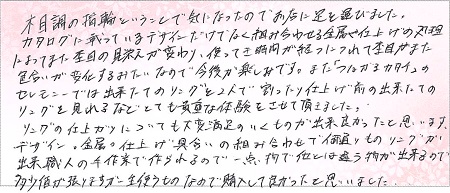 木目調の指輪ということで気になったのでお店に足を運びました。
カタログに載っているデザインだけでなく組み合わせる金属や仕上げの処理
によってまた木目の見え方が変わり、使ってき時間が経つにつれて木目がまた
色合いが変化するみたいなので今後が楽しみです。また「つながるカタチ」の
セレモニーでは出来たてのリングを2人で割ったり仕上げ前の出来たての
リングを見れるなどとても貴重な体験をさせて頂きました。
リングの仕上がりについても大変満足のいくものが出来良かったと思います。
デザイン。金属。仕上げ具合いの組み合わせで何通りものリングが
出来職人の手作業で作られるので一点物で他とは違う物が出来るので
多少値が張りますが一生使うものなので購入して良かったと思いました。